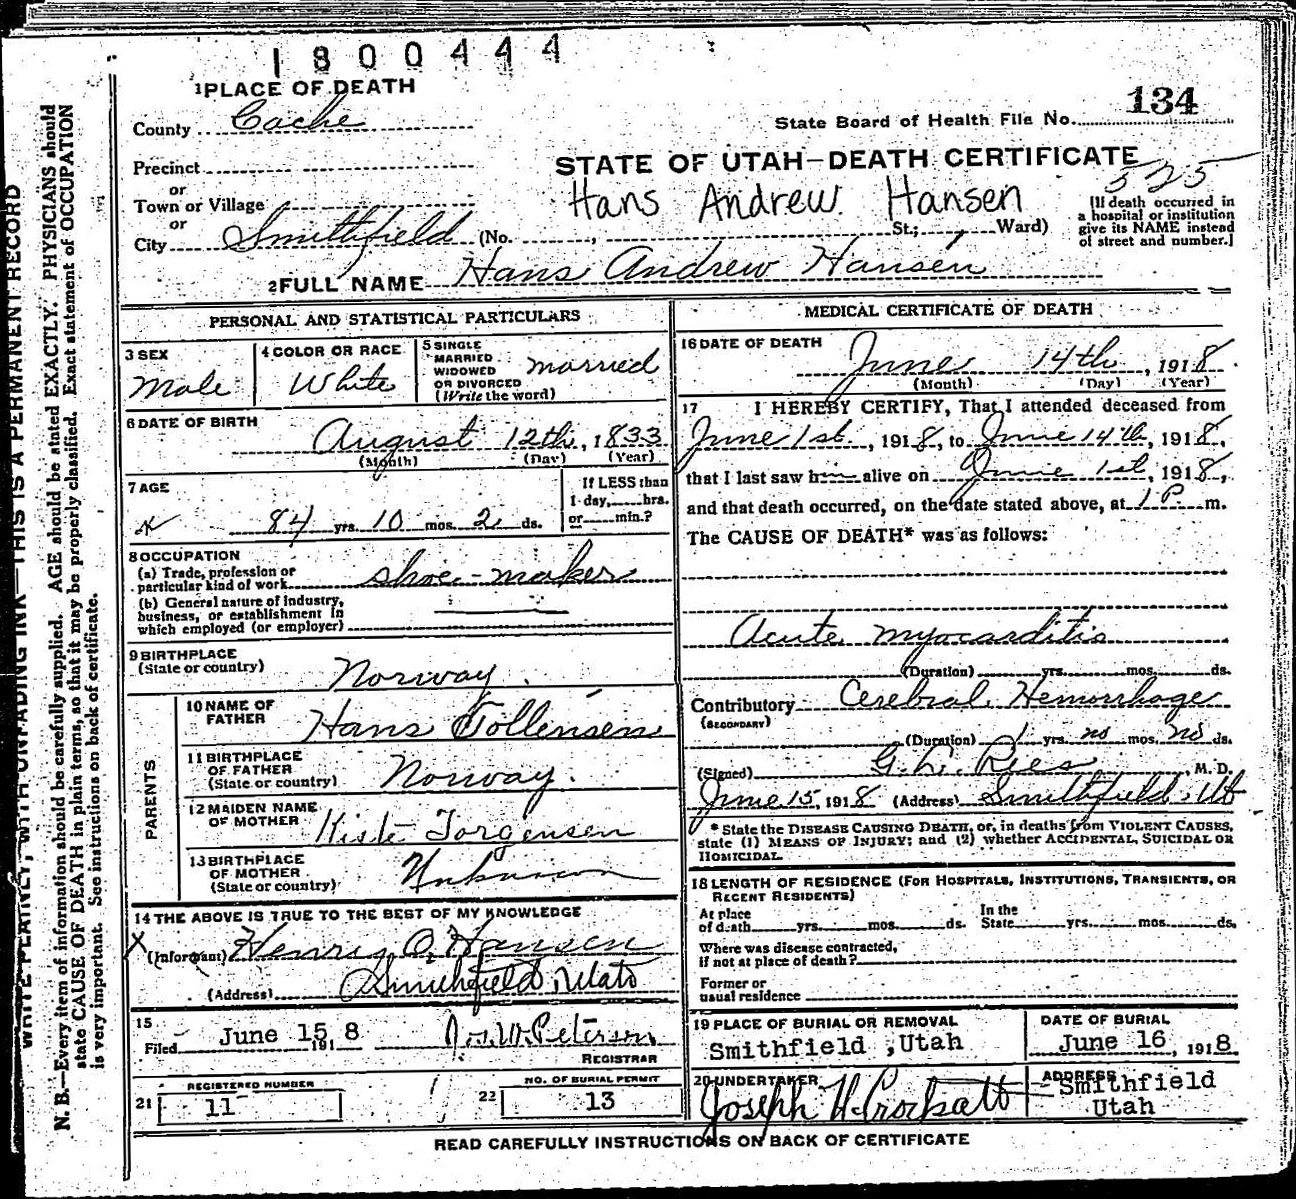 1800444
1 PLACE OF DEATH
County Cache
State Board of Health File No. 134
Precinct
STATE OF UTAH—DEATH CERTIFICATE
or
525
Town or Village
Hans Andrew Hansen
or
City Smithfield (No. , St.; Ward)
[If death occurred in
a hospital or institution
give its NAME instead
of street and number.]
2 FULL NAME Hans Andrew Hansen
PERSONAL AND STATISTICAL PARTICULARS
3 SEX
Male
4 COLOR OR RACE
White
5 SINGLE
MARRIED
WIDOWED
OR DIVORCED
(Write the word)
married
6 DATE OF BIRTH
August 12th, 1833
(Month) (Day) (Year)
7 AGE
84 yrs. 10 mos. 2 ds.
If LESS than
1 day, hrs.
or min.?
8 OCCUPATION
(a) Trade, profession or
particular kind of work shoe-maker
(b) General nature of industry,
business, or establishment in
which employed (or employer)
9 BIRTHPLACE
(State or country) Norway.
PARENTS
10 NAME OF
FATHER Hans Tollensen
11 BIRTHPLACE
OF FATHER
(State or country) Norway.
12 MAIDEN NAME
OF MOTHER Kiste Torgensen
13 BIRTHPLACE
OF MOTHER
(State or country) Unknown
14 THE ABOVE IS TRUE TO THE BEST OF MY KNOWLEDGE
X (Informant) Henry O. Hansen
(Address) Smithfield, Utah
15
Filed June 15, 1918 Jos. W. Peterson
REGISTRAR
21 REGISTERED NUMBER
11
22 NO. OF BURIAL PERMIT
13
MEDICAL CERTIFICATE OF DEATH
16 DATE OF DEATH
June 14th, 1918
(Month) (Day) (Year)
17 I HEREBY CERTIFY, That I attended deceased from
June 1st, 1918, to June 14th, 1918,
that I last saw him alive on June 1st, 1918,
and that death occurred, on the date stated above, at 1 P. m.
The CAUSE OF DEATH* was as follows:
Acute myocarditis
(Duration) yrs. mos. ds.
Contributory Cerebral Hemorrhage
(SECONDARY)
(Duration) 1 yrs. no mos. no ds.
(Signed) G. L. Rees, M. D.
June 15, 1918 (Address) Smithfield, Ut
* State the DISEASE CAUSING DEATH, or, in deaths from VIOLENT CAUSES,
state (1) MEANS OF INJURY; and (2) whether ACCIDENTAL, SUICIDAL OR
HOMICIDAL.
18 LENGTH OF RESIDENCE (FOR HOSPITALS, INSTITUTIONS, TRANSIENTS, OR
RECENT RESIDENTS)
At place
of death yrs. mos. ds.
In the
State yrs. mos. ds.
Where was disease contracted,
if not at place of death?
Former or
usual residence
19 PLACE OF BURIAL OR REMOVAL
Smithfield ,Utah
DATE OF BURIAL
June 16, 1918
20 UNDERTAKER
Joseph H. Crockatt
ADDRESS
Smithfield
Utah
READ CAREFULLY INSTRUCTIONS ON BACK OF CERTIFICATE
WRITE PLAINLY, WITH UNFADING INK—THIS IS A PERMANENT RECORD
N. B.—Every item of information should be carefully supplied. AGE should be stated EXACTLY. PHYSICIANS should
state CAUSE OF DEATH in plain terms, so that it may be properly classified. Exact statement of OCCUPATION
is very important. See instructions on back of certificate.